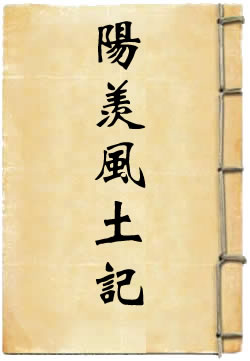 陽羨風土記